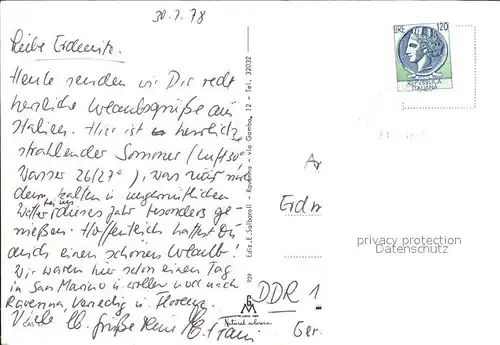 30.7.78
Liebe Erdmute.
Heute senden wir Dir recht
herzliche Urlaubsgrüße aus
Italien. Hier ist herrlich
strahlender Sommer (Luft 30°
Wasser 26/27°), was wir nach
dem kalten u. ungemütlichen
Wetter bei uns dieses Jahr besonders ge-
nießen. Hoffentlich hattest Du
auch einen schönen Urlaub!
Wir waren hier schon einen Tag
in San Marino u. wollen noch nach
Ravenna, Venedig u. Florenz.
Viele lb. Grüße
Ediz. E. Salbaroli - Ravenna - via Gamba, 12 - Tel. 32032
939
Natural colours
LIRE 120
REPUBBLICA
ITALIANA
An
Erdm
DDR 1
Ger.
privacy protection
Datenschutz